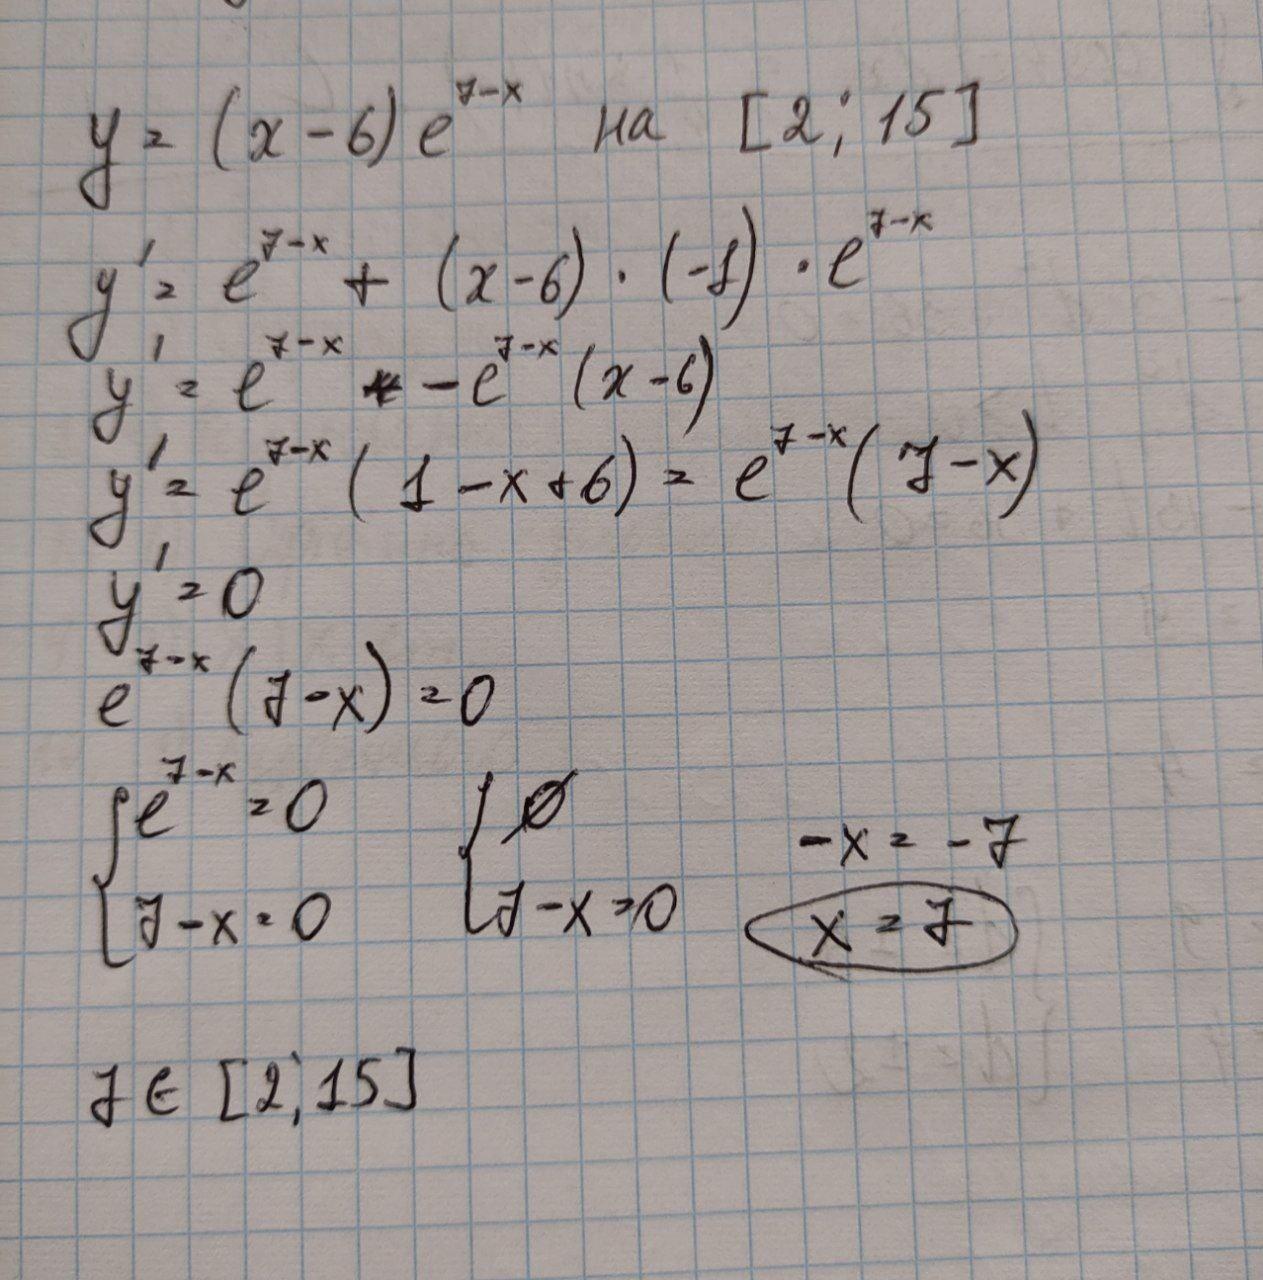 y = (x - 6) e^{7-x} на [2; 15]
y' = e^{7-x} + (x - 6) · (-1) · e^{7-x}
y' = e^{7-x} - e^{7-x} (x - 6)
y' = e^{7-x} (1 - x + 6) = e^{7-x} (7 - x)
y' = 0
e^{7-x} (7 - x) = 0
{ e^{7-x} = 0 { ∅ -x = -7
7 - x = 0 7 - x = 0 x = 7
7 ∈ [2; 15]